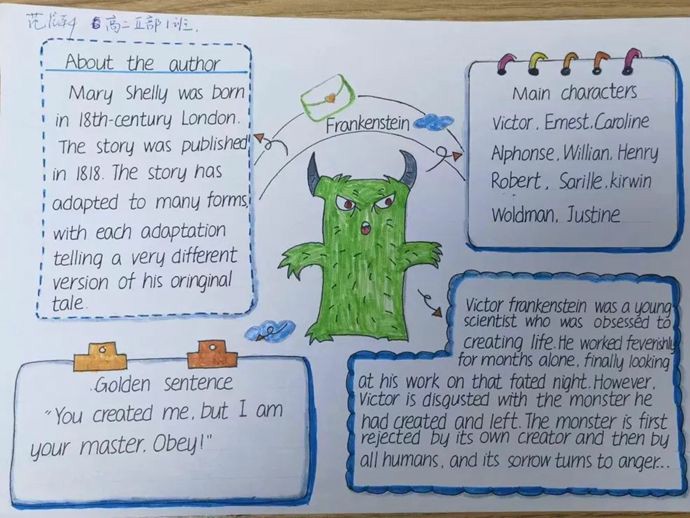 高二Ⅱ部1班.
About the author
Mary Shelly was born
in 18th-century London.
The story was published
in 1818. The story has
adapted to many forms,
with each adaptation
telling a very different
version of his oringinal
tale.
Frankenstein
Main characters
Victor, Ernest, Caroline
Alphonse, Willian, Henry
Robert, Sarille, kirwin
Woldman, Justine
Golden sentence
"You created me, but I am
your master. Obey!"
Victor frankenstein was a young
scientist who was obsessed to
creating life. He worked feverishly
for months alone, finally looking
at his work on that fated night. However,
Victor is disgusted with the monster he
had created and left. The monster is first
rejected by its own creator and then by
all humans, and its sorrow turns to anger...